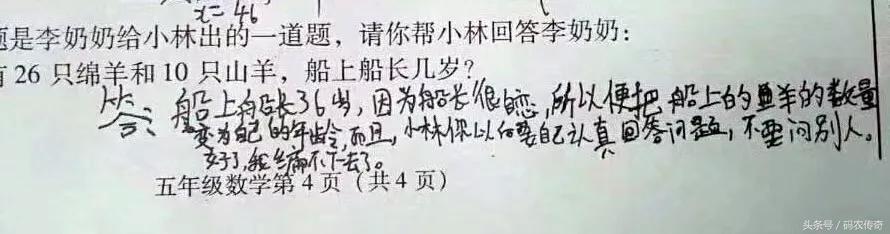 x=46
题是李奶奶给小林出的一道题，请你帮小林回答李奶奶：
有26只绵羊和10只山羊，船上船长几岁？
答：船上船长36岁，因为船长很自恋，所以便把船上的羊的数量
变为自己的年龄，而且，小林你以后要自己认真回答问题，不要问别人。
孩子，我编不下去了。
五年级数学第4页（共4页）
头条号 / 码农传奇